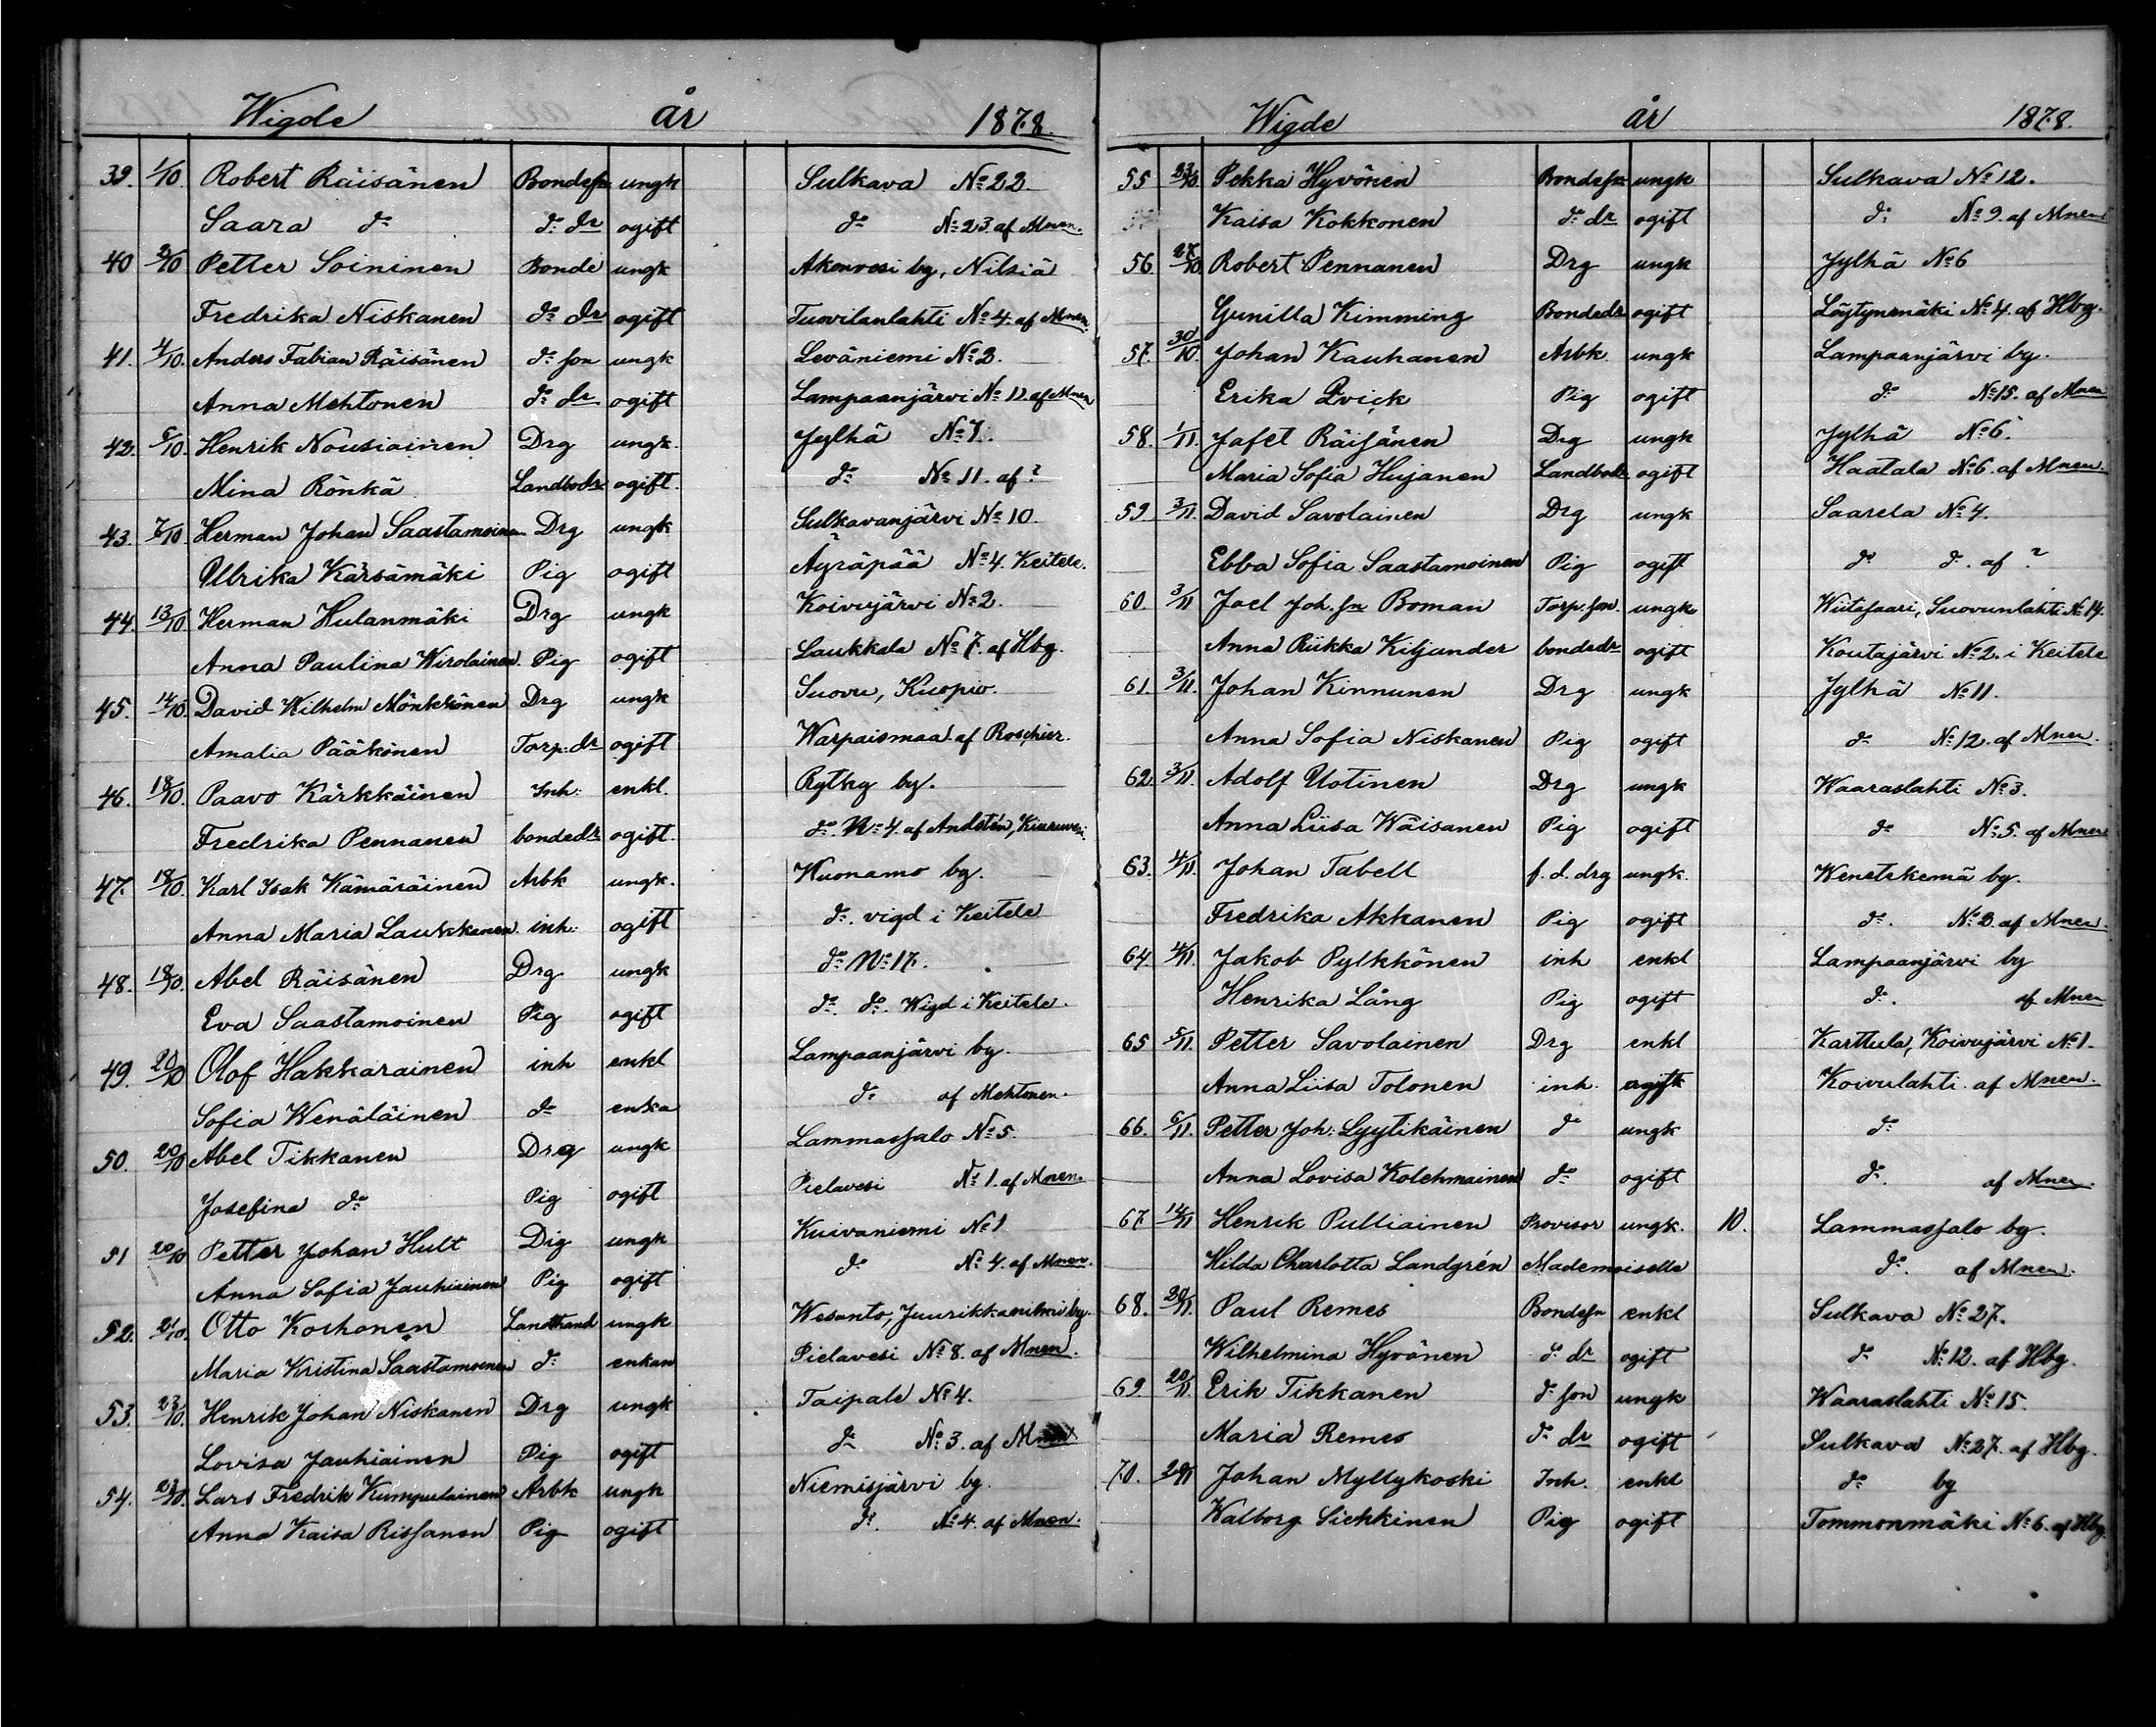 Wigde år 1878.
39. 1/10. Robert Räisänen Bondesn ungk Sulkava No 22.
Saara do do dr ogift do No 23. af Mnen.
40 2/10 Petter Soininen Bonde ungk Akonvesi by, Nilsiä
Fredrika Niskanen do dr ogift Tuovilanlahti No 4. af Mnen.
41. 4/10. Anders Fabian Räisänen do son ungk Leväniemi No 2.
Anna Mehtonen do dr ogift Lampaanjärvi No 12. af Mnen
42. 6/10. Henrik Nousiainen Drg ungk. Jylhä No 7.
Mina Rönkä Landbodr ogift. do No 11. af ?
43. 7/10. Herman Johan Saastamoinen Drg ungk Sulkavanjärvi No 10.
Ulrika Kärsämäki Pig ogift Äyräpää No 4. Keitele.
44. 13/10 Herman Hulanmäki Drg ungk Koivujärvi No 2.
Anna Paulina Wirolainen. Pig ogift Laukkala No 7. af Hbg.
45. 14/10. David Wilhelm Mönkkönen Drg ungk Suovu, Kuopio.
Amalia Pääkönen Torp. dr ogift Warpaismaa af Roschier.
46. 18/10. Paavo Kärkkäinen Inh: enkl. Rytky by.
Fredrika Pennanen bondedr ogift. do. No 4. af Andstén, Kiuruvesi.
47. 18/10. Karl Isak Kämäräinen Arbk ungk. Wuonamo by.
Anna Maria Laukkanen inh: ogift do. vigd i Keitele
48. 18/10. Abel Räisänen Drg ungk do No 17.
Eva Saastamoinen Pig ogift do. do. Wigd i Keitele.
49. 20/10 Olof Hakkarainen inh enkl Lampaanjärvi by.
Sofia Wenäläinen do enka do af Mehtonen.
50. 20/10 Abel Tikkanen Drg ungk Lammassalo No 5.
Josefina do Pig ogift Pielavesi No 1. af Mnen.
51 20/10 Petter Johan Hult Drg ungk Kuivaniemi No 1
Anna Sofia Jauhiainen Pig ogift do No 4. af Mnen.
52. 21/10. Otto Korhonen Landthand ungk Wesanto, Juurikkaniemi by.
Maria Kristina Saastamoinen do enkan Pielavesi No 8. af Mnen.
53. 23/10. Henrik Johan Niskanen Drg ungk Taipale No 4.
Lovisa Jauhiainen Pig ogift do No 3. af Mnen
54. 23/10. Lars Fredrik Kumpulainen Arbk ungk Niemisjärvi by.
Anna Kaisa Rissanen Pig ogift do. No 4. af Mnen.
Wigde år 1878.
55 23/10. Pekka Hyvönen Bondesn ungk Sulkava No 12.
Kaisa Kokkonen do dr ogift do No 9. af Mnen
56 27/10 Robert Pennanen Drg ungk Jylhä No 6
Gunilla Kimming Bondedr ogift Löytynmäki No 4. af Hbg.
57. 30/10 Johan Kauhanen Arbk. ungk Lampaanjärvi by.
Erika Qvick Pig ogift do No 15. af Mnen
58. 1/11 Jafet Räisänen Drg ungk Jylhä No 6.
Maria Sofia Hujanen Landbodr ogift Haatala No 6. af Mnen.
59. 3/11. David Savolainen Drg ungk Saarela No 4.
Ebba Sofia Saastamoinen Pig ogift do do. af ?
60. 3/11 Joel Joh. sn Boman Torp. son ungk Wiitasaari, Suovunlahti No 14.
Anna Riikka Kiljander bondedr ogift Koutajärvi No 2. i Keitele
61. 3/11. Johan Kinnunen Drg ungk Jylhä No 11.
Anna Sofia Niskanen Pig ogift do No 12. af Mnen.
62. 3/11. Adolf Uotinen Drg ungk Waaraslahti No 3.
Anna Liisa Wäisanen Pig ogift do No 5. af Mnen
63. 4/11. Johan Tabell f. d. drg ungk. Wenetekemä by.
Fredrika Akkanen Pig ogift do. No 2. af Mnen.
64. 4/11. Jakob Pylkkönen inh enkl Lampaanjärvi by
Henrika Lång Pig ogift do. af Mnen
65 5/11. Petter Savolainen Drg enkl Karttula, Koivujärvi No 1.
Anna Liisa Tolonen inh. ogift Koivulahti af Mnen.
66. 6/11. Petter Joh: Lyytikäinen do ungk do
Anna Lovisa Kolehmainen do ogift do. af Mnen.
67. 14/11 Henrik Pulliainen Provisor ungk. 10. Lammassalo by.
Hilda Charlotta Landgrén Mademoiselle do. af Mnen.
68. 20/11. Paul Remes Bondesn enkl Sulkava No 27.
Wilhelmina Hyvönen do dr ogift do No 12. af Hbg.
69 20/11. Erik Tikkanen do son ungk Waaraslahti No 15.
Maria Remes do dr ogift Sulkava No 27. af Hbg.
70. 20/11 Johan Myllykoski Inh. enkl do by
Walborg Siekkinen Pig ogift Tommonmäki No 6. af Hbg.